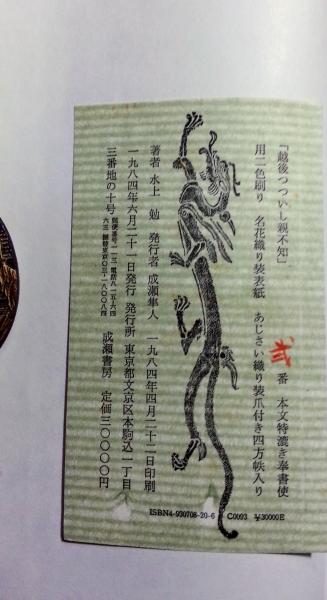 「越後つついし親不知」 弐 番 本文特漉き奉書使
用二色刷り 名花織り装表紙 あじさい織り装爪付き四方帙入り
著者 水上 勉 発行者 成瀬隼人 一九八四年四月二十二日印刷
一九八四年六月二十一日発行 発行所 東京都文京区本駒込一丁目
三番地の十号 郵便番号一一三 電話八一五・六四
六三 振替東京〇三・一八〇〇八四 成瀬書房 定価三〇〇〇〇円
ISBN4-930708-20-6 C0093 ¥30000E